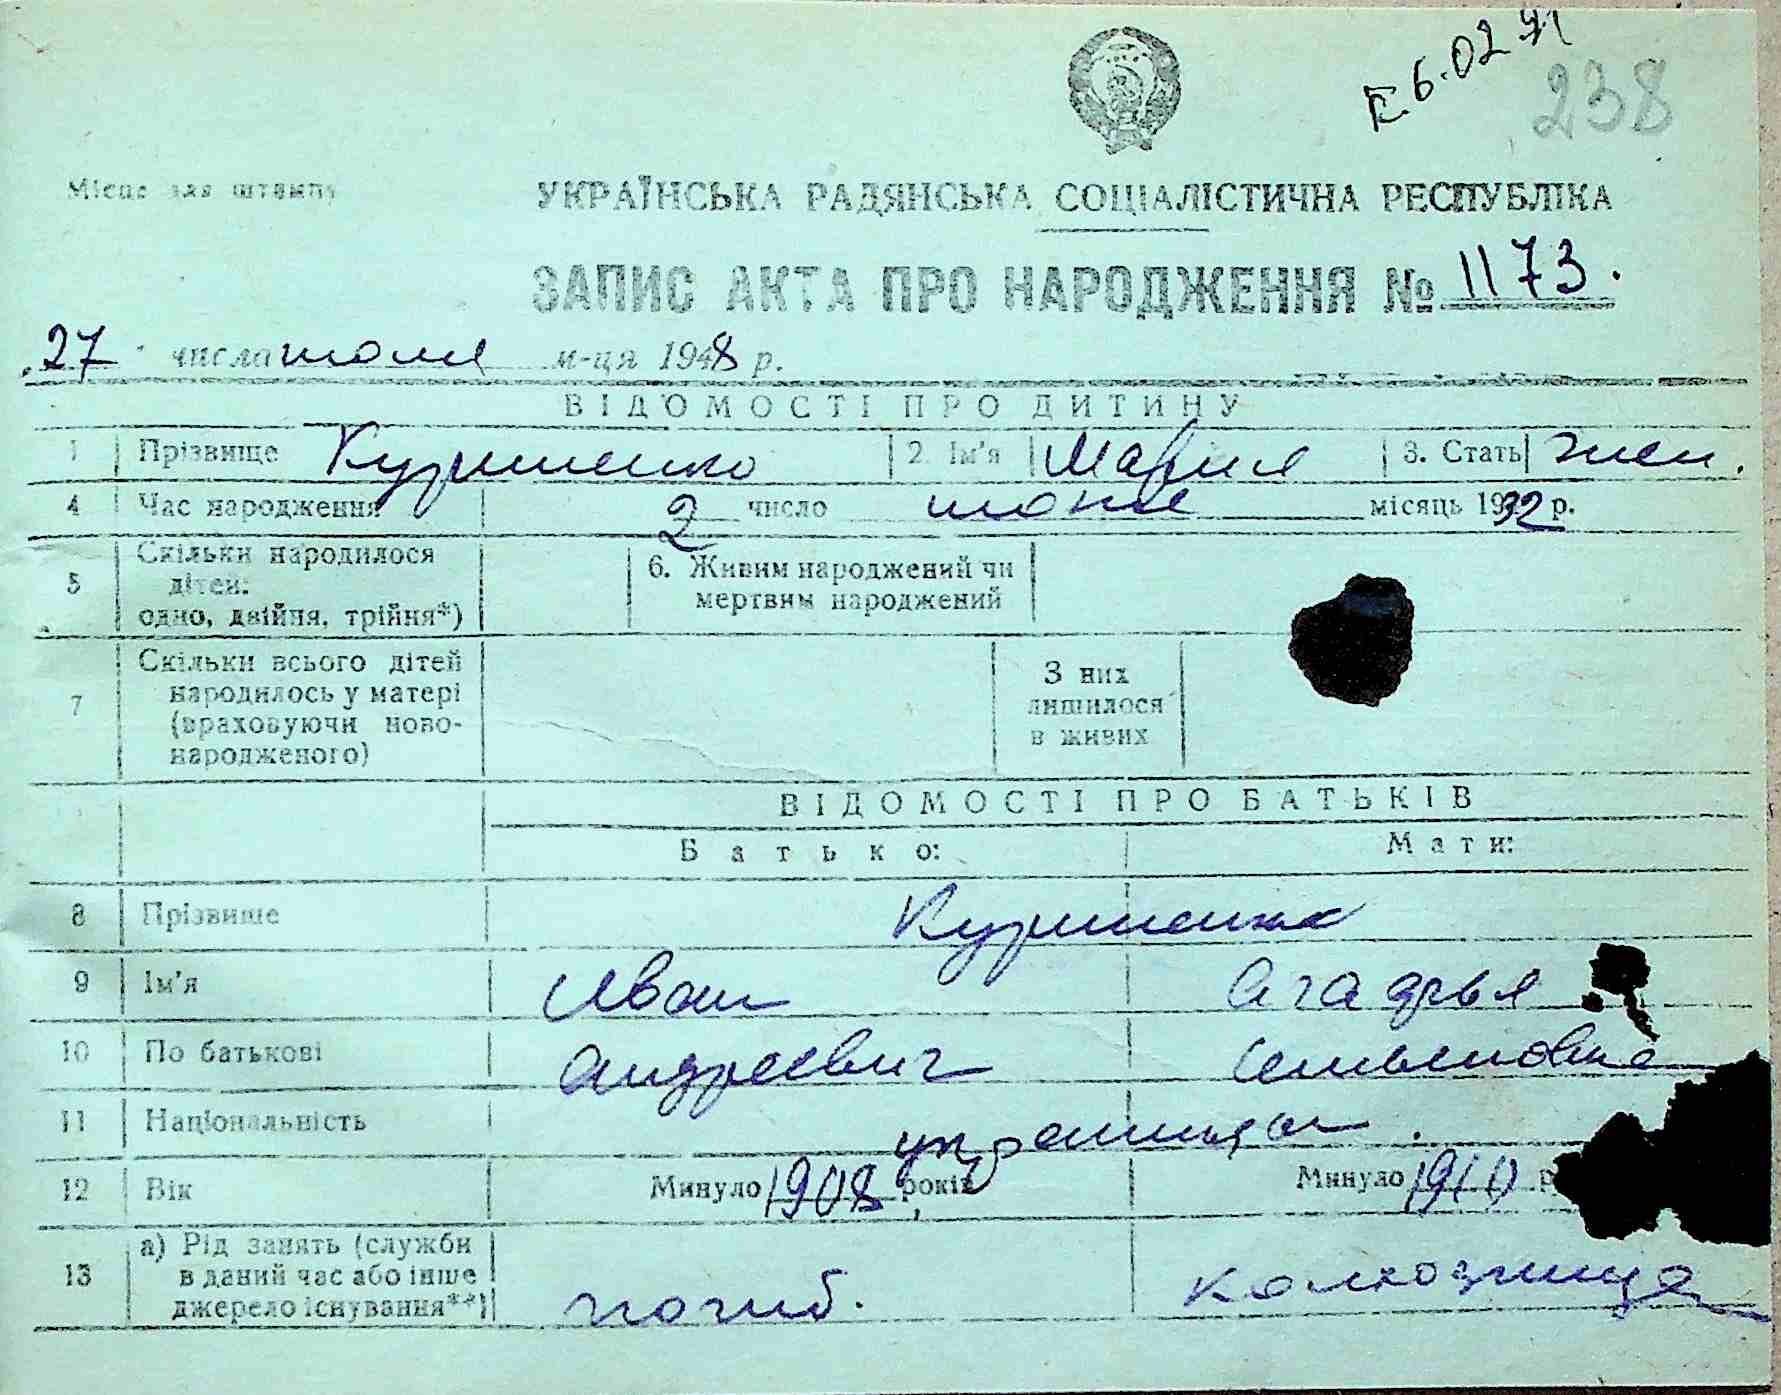 Е. 6.02 91
238
Місце для штампу
УКРАЇНСЬКА РАДЯНСЬКА СОЦІАЛІСТИЧНА РЕСПУБЛІКА
ЗАПИС АКТА ПРО НАРОДЖЕННЯ № 1173.
27 числа июля м-ця 1948 р.
ВІДОМОСТІ ПРО ДИТИНУ
1 Прізвище Куриленко 2. Ім'я Мария 3. Стать жен.
4 Час народження 2 число июня місяць 1932 р.
5 Скільки народилося дітей: одно, двійня, трійня*) 6. Живим народжений чи мертвим народжений
7 Скільки всього дітей народилось у матері (враховуючи новонародженого) З них лишилося в живих
ВІДОМОСТІ ПРО БАТЬКІВ
Батько: Мати:
8 Прізвище Куриленко
9 Ім'я Иван
10 По батькові Андреевич Семеновна
11 Національність украинцы.
12 Вік Минуло 1908 років Минуло 1910 р
13 а) Рід занять (служби в даний час або інше джерело існування**) погиб. колхозница